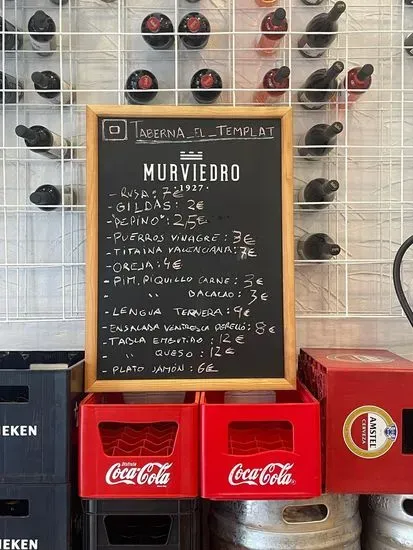 TABERNA_EL_TEMPLAT
MURVIEDRO
· 1927 ·
- RUSA: 7€
- GILDAS: 2€
- "PEPINO": 2,5€
- PUERROS VINAGRE: 3€
- TITAINA VALENCIANA: 7€
- OREJA: 4€
- PIM. PIQUILLO CARNE: 3€
- " " BACALAO: 3€
- LENGUA TERNERA: 9€
- ENSALADA VENTRESCA PERELLÓ: 8€
- TABLA EMBUTIDO: 12€
- " QUESO: 12€
- PLATO JAMÓN: 6€
EKEN
Disfruta
Coca-Cola
Coca-Cola
AMSTEL
CERVEZA
EKEN